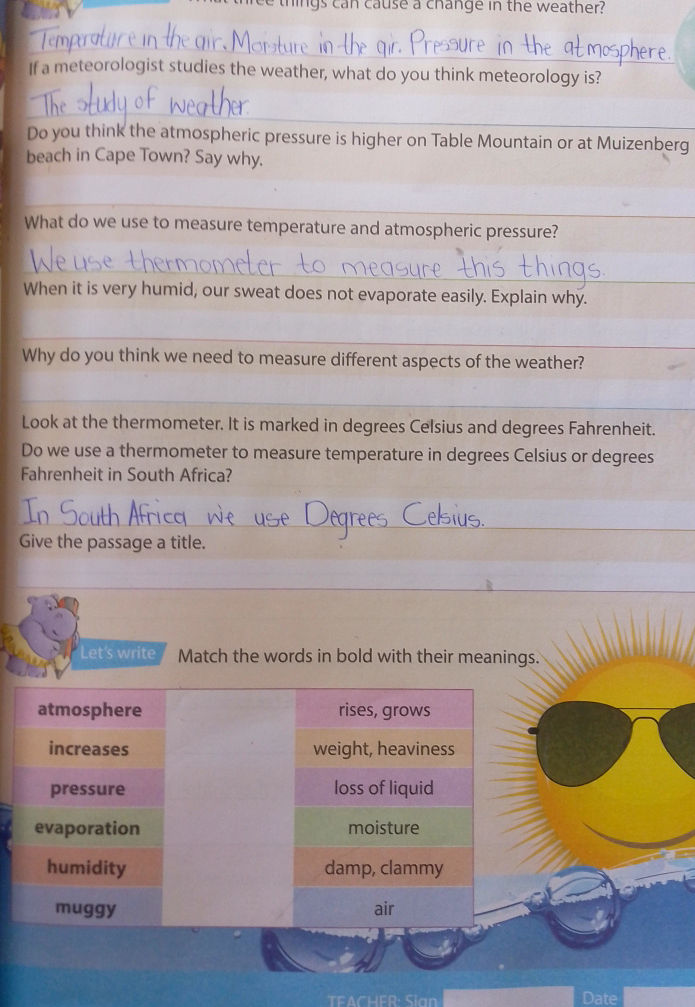 three things can cause a change in the weather?
Temperature in the air. Moisture in the air. Pressure in the atmosphere.
If a meteorologist studies the weather, what do you think meteorology is?
The study of weather.
Do you think the atmospheric pressure is higher on Table Mountain or at Muizenberg
beach in Cape Town? Say why.
What do we use to measure temperature and atmospheric pressure?
We use thermometer to measure this things.
When it is very humid, our sweat does not evaporate easily. Explain why.
Why do you think we need to measure different aspects of the weather?
Look at the thermometer. It is marked in degrees Celsius and degrees Fahrenheit.
Do we use a thermometer to measure temperature in degrees Celsius or degrees
Fahrenheit in South Africa?
In South Africa we use Degrees Celsius.
Give the passage a title.
Let's write Match the words in bold with their meanings.
atmosphere rises, grows
increases weight, heaviness
pressure loss of liquid
evaporation moisture
humidity damp, clammy
muggy air
TEACHER: Sign Date